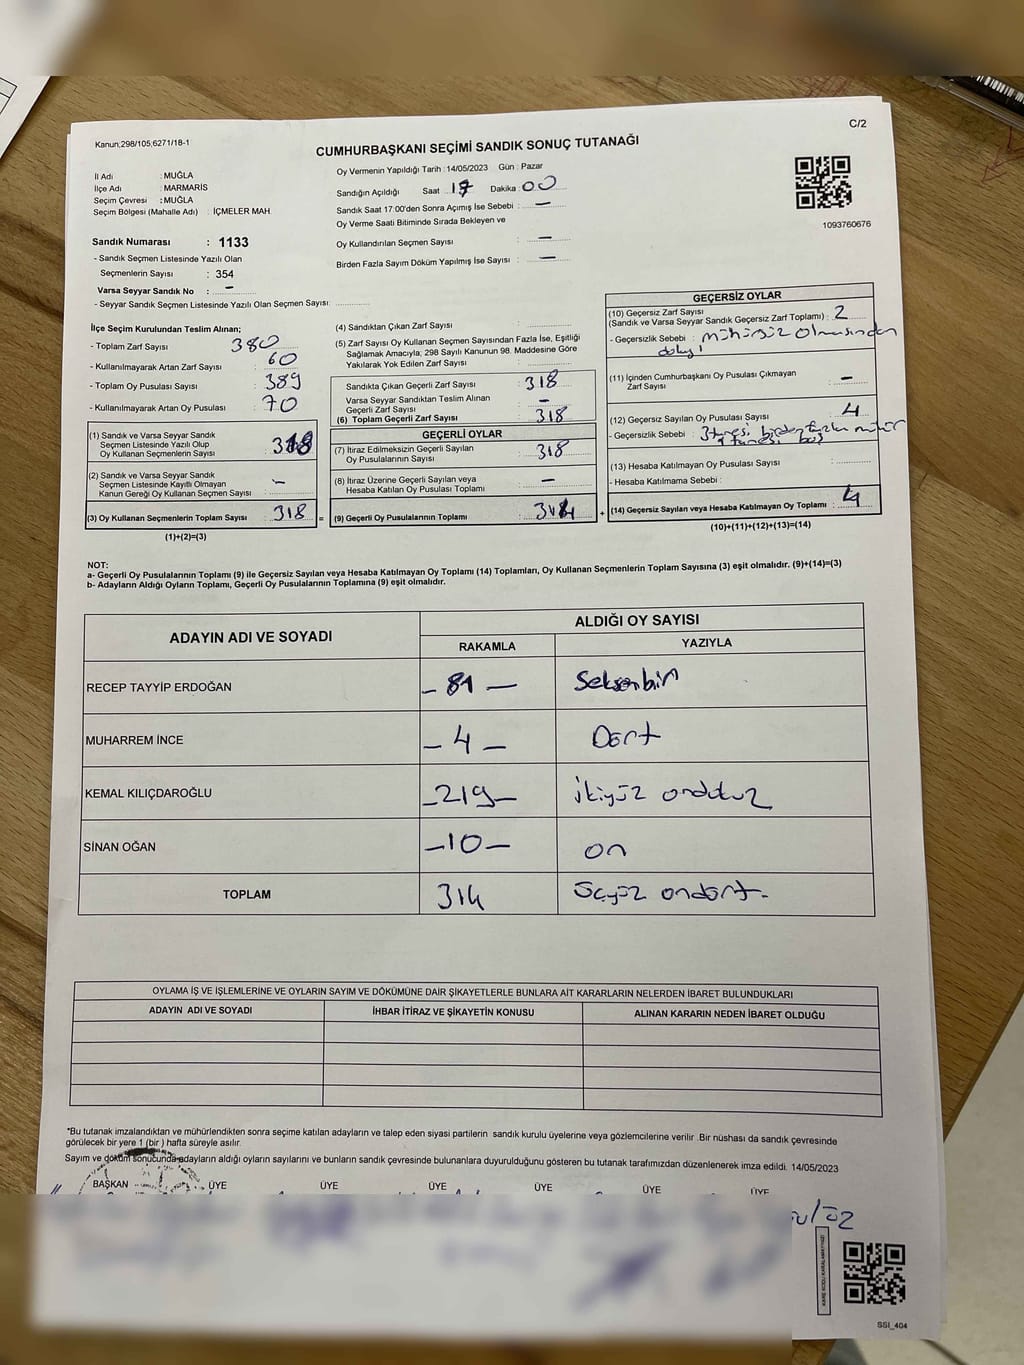 Kanun;298/105;6271/18-1
C/2
CUMHURBAŞKANI SEÇİMİ SANDIK SONUÇ TUTANAĞI
İl Adı : MUĞLA
İlçe Adı : MARMARİS
Seçim Çevresi : MUĞLA
Seçim Bölgesi (Mahalle Adı) : İÇMELER MAH.
Oy Vermenin Yapıldığı Tarih : 14/05/2023 Gün : Pazar
Sandığın Açıldığı Saat : 17 Dakika : 00
Sandık Saat 17:00'den Sonra Açımış İse Sebebi : —
Oy Verme Saati Bitiminde Sırada Bekleyen ve
Oy Kullandırılan Seçmen Sayısı : —
Birden Fazla Sayım Döküm Yapılmış İse Sayısı : —
1093760676
Sandık Numarası : 1133
- Sandık Seçmen Listesinde Yazılı Olan
Seçmenlerin Sayısı : 354
Varsa Seyyar Sandık No : -
- Seyyar Sandık Seçmen Listesinde Yazılı Olan Seçmen Sayısı:
İlçe Seçim Kurulundan Teslim Alınan;
- Toplam Zarf Sayısı 380
- Kullanılmayarak Artan Zarf Sayısı : 60
- Toplam Oy Pusulası Sayısı : 389
- Kullanılmayarak Artan Oy Pusulası : 70
(1) Sandık ve Varsa Seyyar Sandık
Seçmen Listesinde Yazılı Olup
Oy Kullanan Seçmenlerin Sayısı : 318
(2) Sandık ve Varsa Seyyar Sandık
Seçmen Listesinde Kayıtlı Olmayan
Kanun Gereği Oy Kullanan Seçmen Sayısı : —
(3) Oy Kullanan Seçmenlerin Toplam Sayısı : 318 =
(1)+(2)=(3)
(4) Sandıktan Çıkan Zarf Sayısı :
(5) Zarf Sayısı Oy Kullanan Seçmen Sayısından Fazla İse, Eşitliği
Sağlamak Amacıyla; 298 Sayılı Kanunun 98. Maddesine Göre
Yakılarak Yok Edilen Zarf Sayısı :
Sandıkta Çıkan Geçerli Zarf Sayısı : 318
Varsa Seyyar Sandıktan Teslim Alınan
Geçerli Zarf Sayısı : —
(6) Toplam Geçerli Zarf Sayısı : 318
GEÇERLİ OYLAR
(7) İtiraz Edilmeksizin Geçerli Sayılan
Oy Pusulalarının Sayısı : 318
(8) İtiraz Üzerine Geçerli Sayılan veya
Hesaba Katılan Oy Pusulası Toplamı : —
(9) Geçerli Oy Pusulalarının Toplamı : 314 +
GEÇERSİZ OYLAR
(10) Geçersiz Zarf Sayısı
(Sandık ve Varsa Seyyar Sandık Geçersiz Zarf Toplamı) : 2
- Geçersizlik Sebebi : mühürsüz olmasından
dolayı
(11) İçinden Cumhurbaşkanı Oy Pusulası Çıkmayan
Zarf Sayısı : —
(12) Geçersiz Sayılan Oy Pusulası Sayısı : 4
- Geçersizlik Sebebi : 3 tanesi birden fazla mühür
1 tanesi boş
(13) Hesaba Katılmayan Oy Pusulası Sayısı :
- Hesaba Katılmama Sebebi :
(14) Geçersiz Sayılan veya Hesaba Katılmayan Oy Toplamı : 4
(10)+(11)+(12)+(13)=(14)
NOT:
a- Geçerli Oy Pusulalarının Toplamı (9) ile Geçersiz Sayılan veya Hesaba Katılmayan Oy Toplamı (14) Toplamları, Oy Kullanan Seçmenlerin Toplam Sayısına (3) eşit olmalıdır. (9)+(14)=(3)
b- Adayların Aldığı Oyların Toplamı, Geçerli Oy Pusulalarının Toplamına (9) eşit olmalıdır.
ADAYIN ADI VE SOYADI
ALDIĞI OY SAYISI
RAKAMLA YAZIYLA
RECEP TAYYİP ERDOĞAN – 81 — Seksenbir
MUHARREM İNCE – 4 – Dört
KEMAL KILIÇDAROĞLU –219– ikiyüz ondokuz
SİNAN OĞAN –10– on
TOPLAM 314 üçyüz ondört.
OYLAMA İŞ VE İŞLEMLERİNE VE OYLARIN SAYIM VE DÖKÜMÜNE DAİR ŞİKAYETLERLE BUNLARA AİT KARARLARIN NELERDEN İBARET BULUNDUKLARI
ADAYIN ADI VE SOYADI İHBAR İTİRAZ VE ŞİKAYETİN KONUSU ALINAN KARARIN NEDEN İBARET OLDUĞU
*Bu tutanak imzalandıktan ve mühürlendikten sonra seçime katılan adayların ve talep eden siyasi partilerin sandık kurulu üyelerine veya gözlemcilerine verilir .Bir nüshası da sandık çevresinde
görülecek bir yere 1 (bir ) hafta süreyle asılır.
Sayım ve döküm sonucunda adayların aldığı oyların sayılarını ve bunların sandık çevresinde bulunanlara duyurulduğunu gösteren bu tutanak tarafımızdan düzenlenerek imza edildi. 14/05/2023
BAŞKAN ÜYE ÜYE ÜYE ÜYE ÜYE ÜYE
KARE KODU KARALAMAYINIZ!
SSI_404